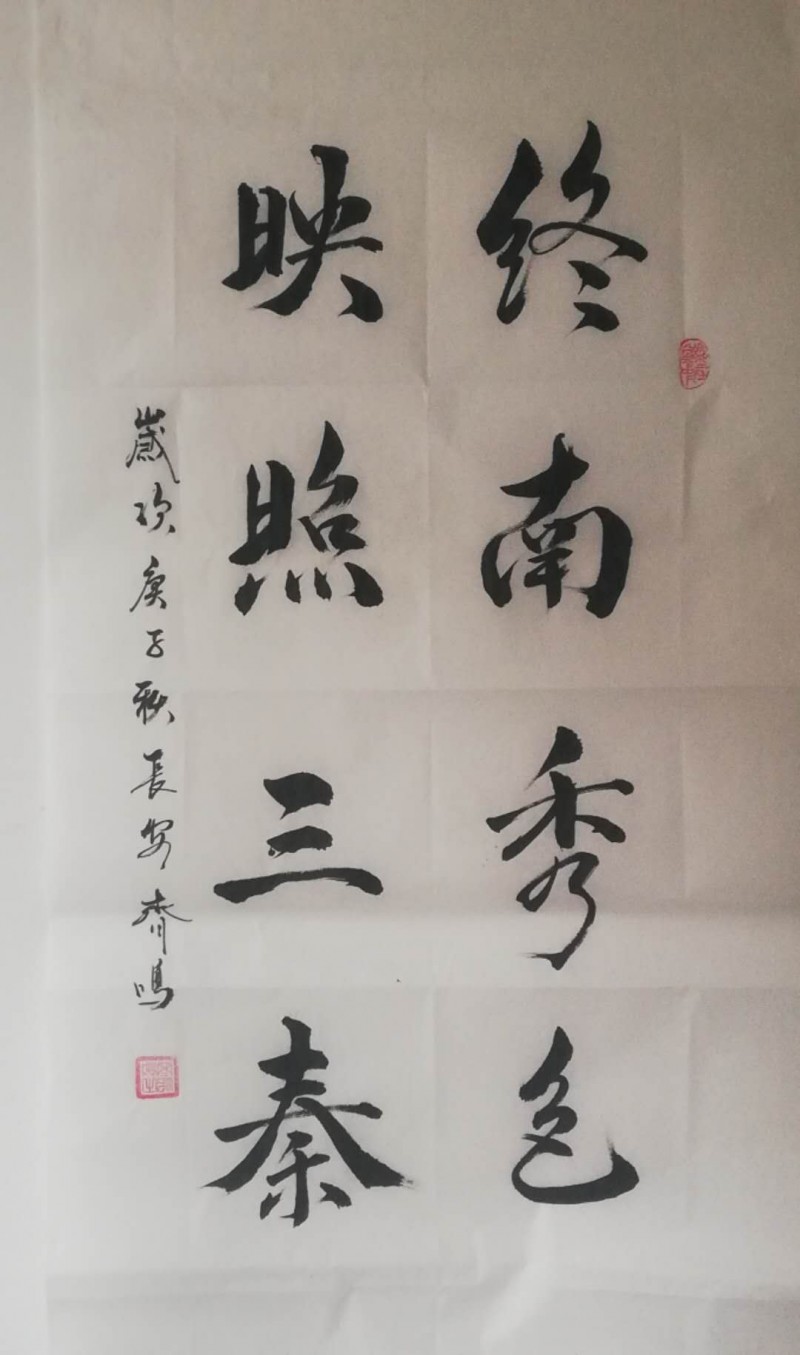 终南秀色
映照三秦
歲次庚子秋長安齊鳴